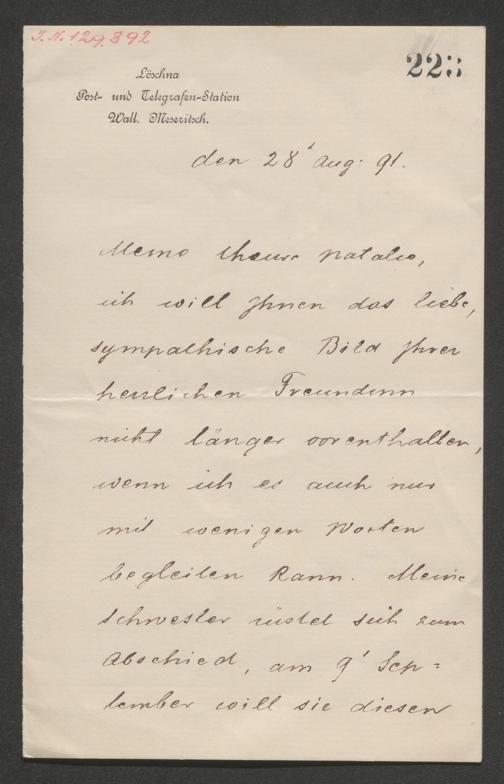 J.N. 129.892
223
Löschna
Post- und Telegrafen-Station
Wall. Meseritsch.
den 28' Aug: 91.
Meine theure Natalie,
ich will Ihnen das liebe,
sympathische Bild Ihrer
herrlichen Freundinn
nicht länger vorenthalten,
wenn ich es auch nur
mit wenigen Worten
begleiten kann. Meine
Schwester rüstet sich zum
Abschied, am 9' Sep=
tember will sie diesen